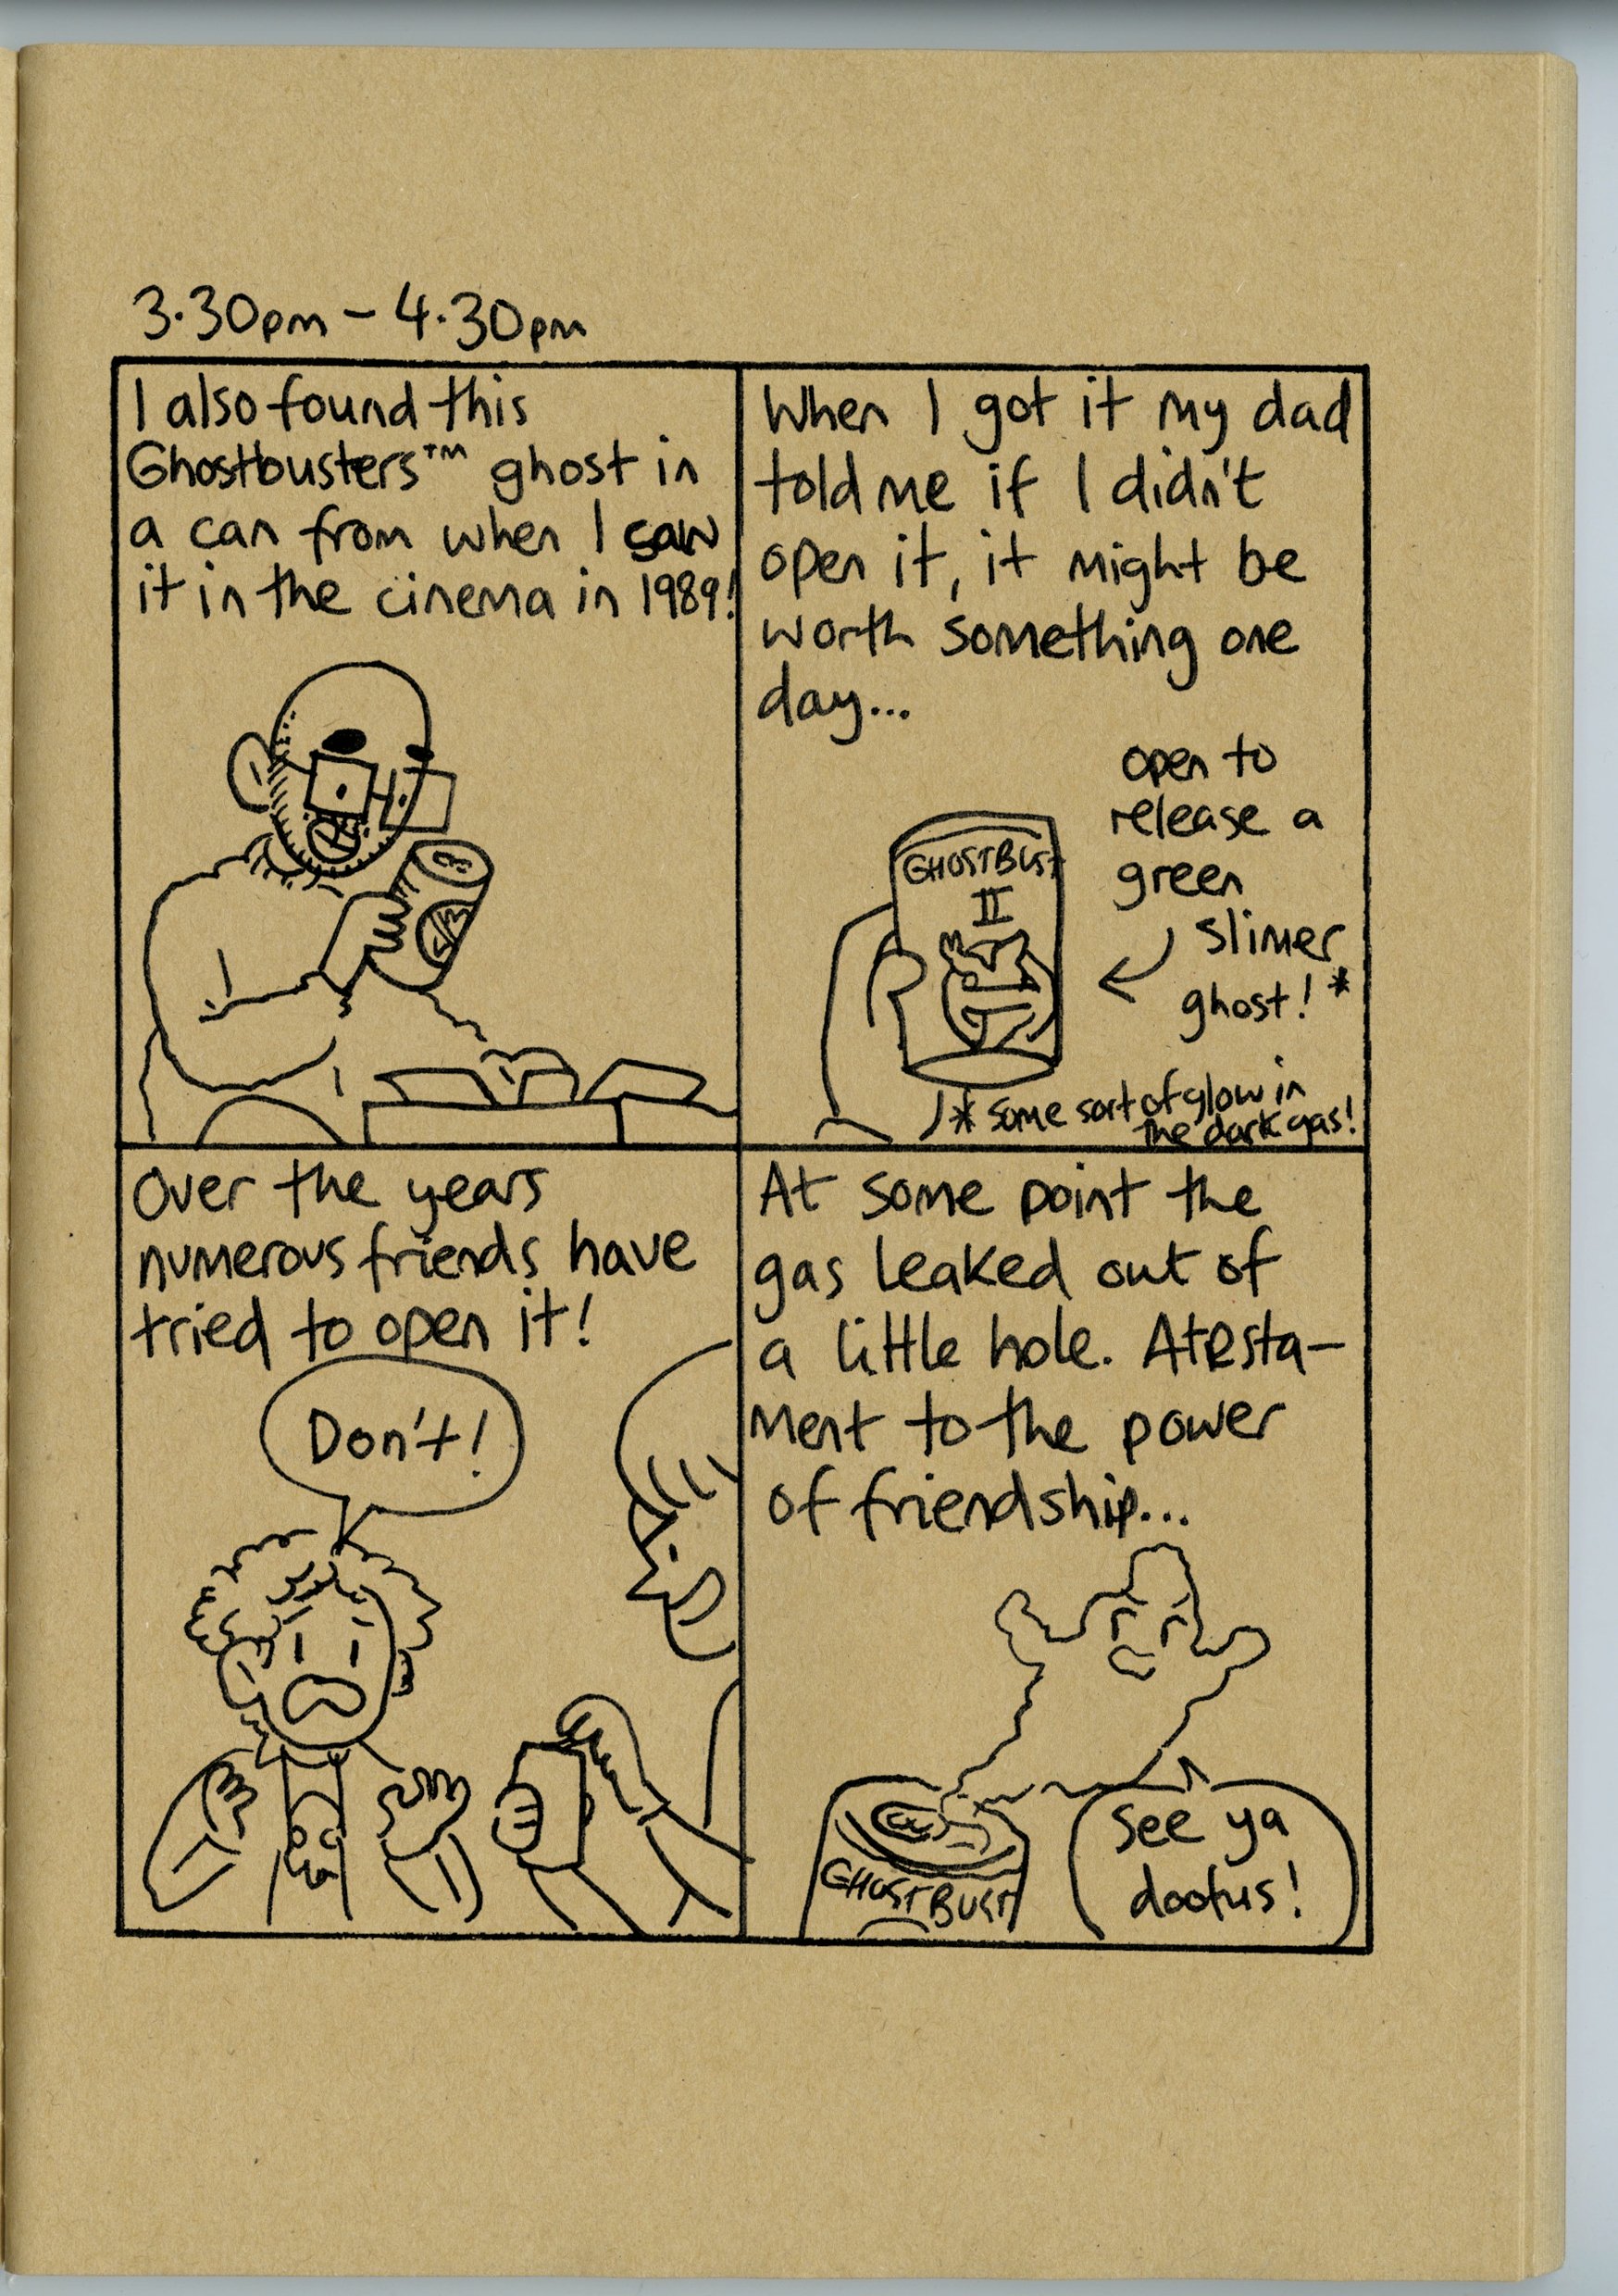 3.30pm - 4.30pm
I also found this
Ghostbusters™ ghost in
a can from when I saw
it in the cinema in 1989!
When I got it my dad
told me if I didn't
open it, it might be
worth something one
day...
open to
release a
green
slimer
ghost!*
GHOSTBUST
II
* some sort of glow in
the dark gas!
Over the years
numerous friends have
tried to open it!
Don't!
At some point the
gas leaked out of
a little hole. A testa-
ment to the power
of friendship...
GHOSTBUST
See ya
doofus!